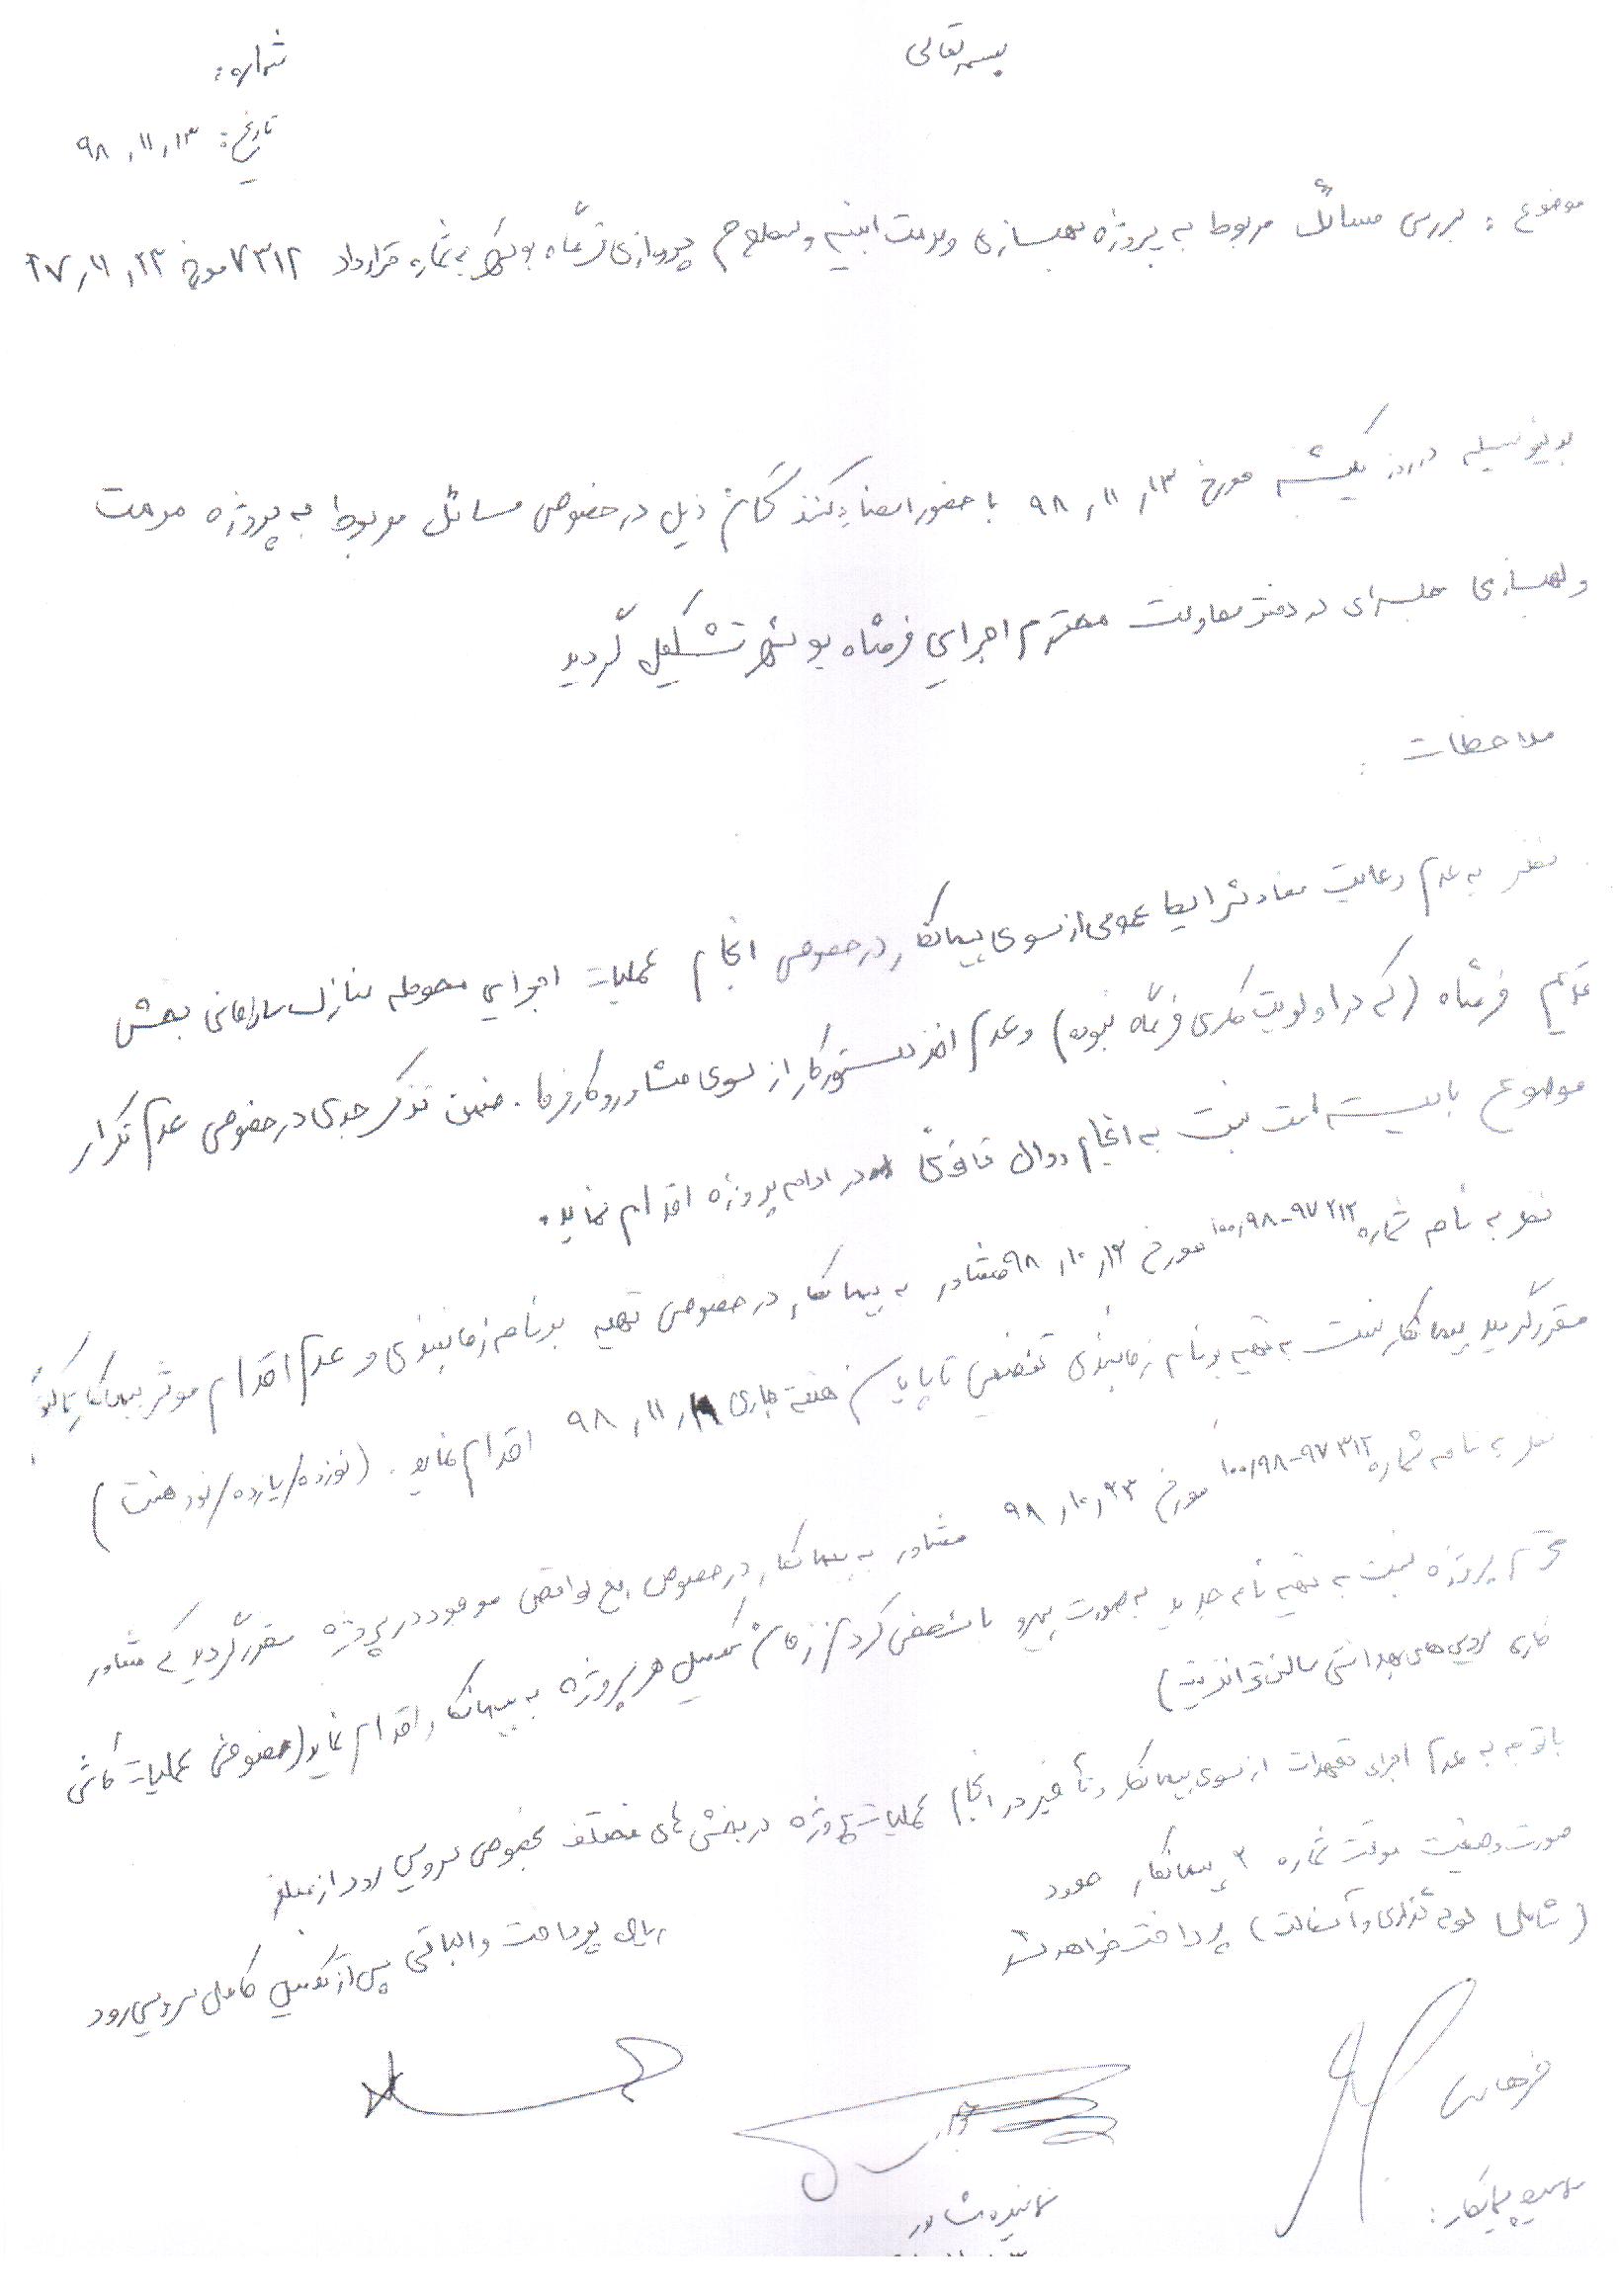 بسمه تعالی
شماره:
تاریخ: ۹۸,۱۱,۱۳
موضوع: بررسی مسائل مربوط به پروژه بهسازی و مرمت ابنیه و سطوح پروازی فرودگاه بوشهر به شماره قرارداد ۷۳۱۲ مورخ ۹۷,۱۱,۲۳
بدینوسیله در روز یکشنبه مورخ ۹۸,۱۱,۱۳ با حضور امضاء کنندگان ذیل در خصوص مسائل مربوط به پروژه مرمت
و بهسازی جلسه‌ای در دفتر معاونت محترم اجرایی فرودگاه بوشهر تشکیل گردید
ملاحظات:
نظر به عدم رعایت مفاد شرایط عمومی از سوی پیمانکار در خصوص انجام عملیات اجرایی محوطه منازل سازمانی بخش
قدیم فرودگاه (که در اولویت کاری فرودگاه نبوده) و عدم اخذ دستور کار از سوی مشاور و کارفرما. ضمن تذکر جدی در خصوص عدم تکرار
موضوع بایسته است نسبت به انجام روال قانونی در ادامه پروژه اقدام نماید.
نظر به نامه شماره ۱۰۰,۹۸-۹۷۳۱۲ مورخ ۹۸,۱۰,۱۴ مشاور به پیمانکار در خصوص تهیه برنامه زمانبندی و عدم اقدام موثر پیمانکار تاکنون
مقرر گردید پیمانکار نسبت به تهیه برنامه زمانبندی تفصیلی تا پایان هفته جاری ۹۸,۱۱,۱۹ اقدام نماید. (نوزده/یازده/نود هشت)
نظر به نامه شماره ۱۰۰,۹۸-۹۷۳۱۲ مورخ ۹۸,۱۰,۲۳ مشاور به پیمانکار در خصوص رفع نواقص موجود در پروژه مقرر گردید که مشاور
محترم پروژه نسبت به تهیه نامه جدید به صورت با مشخص کردن زمان تکمیل هر پروژه به پیمانکار اقدام نماید (خصوص عملیات کاشی
کاری سرویس‌های بهداشتی سالن ترانزیت)
با توجه به عدم اجرای تعهدات از سوی پیمانکار و تأخیر در انجام عملیات پروژه در بخش‌های مختلف بخصوص سرویس رود از مبلغ
صورت وضعیت موقت شماره ۲ پیمانکار حدود ریال پرداخت و الباقی پس از تکمیل کامل سرویس رود
(شامل لوله گذاری و آسفالت) پرداخت خواهد شد
نماینده مشاور
پیمانکار: